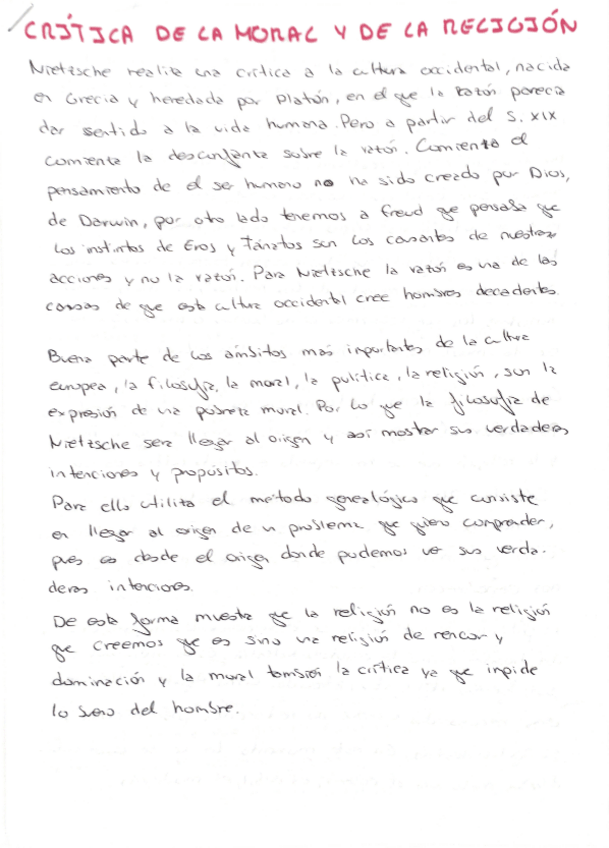 CRÍTICA DE LA MORAL Y DE LA RELIGIÓN
Nietzsche realiza una crítica a la cultura occidental, nacida
en Grecia y heredada por Platón, en el que la razón parecía
dar sentido a la vida humana. Pero a partir del S. XIX
comienza la desconfianza sobre la razón. Comienza el
pensamiento de el ser humano no ha sido creado por Dios,
de Darwin, por otro lado tenemos a Freud que pensaba que
los instintos de Eros y Tánatos son los causantes de nuestras
acciones y no la razón. Para Nietzsche la razón es una de las
causas de que esta cultura occidental cree hombres decadentes.
Buena parte de los ámbitos más importantes de la cultura
europea, la filosofía, la moral, la política, la religión, son la
expresión de una pobreza moral. Por lo que la filosofía de
Nietzsche será llegar al origen y así mostrar sus verdaderas
intenciones y propósitos.
Para ello utiliza el método genealógico que consiste
en llegar al origen de un problema que quiero comprender,
pues es desde el origen donde podemos ver sus verda-
deras intenciones.
De esta forma muestra que la religión no es la religión
que creemos que es sino una religión de rencor y
dominación y la moral también la crítica ya que inpide
lo sano del hombre.